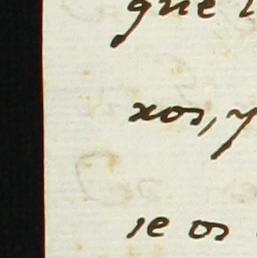 que l
xos, y
se os